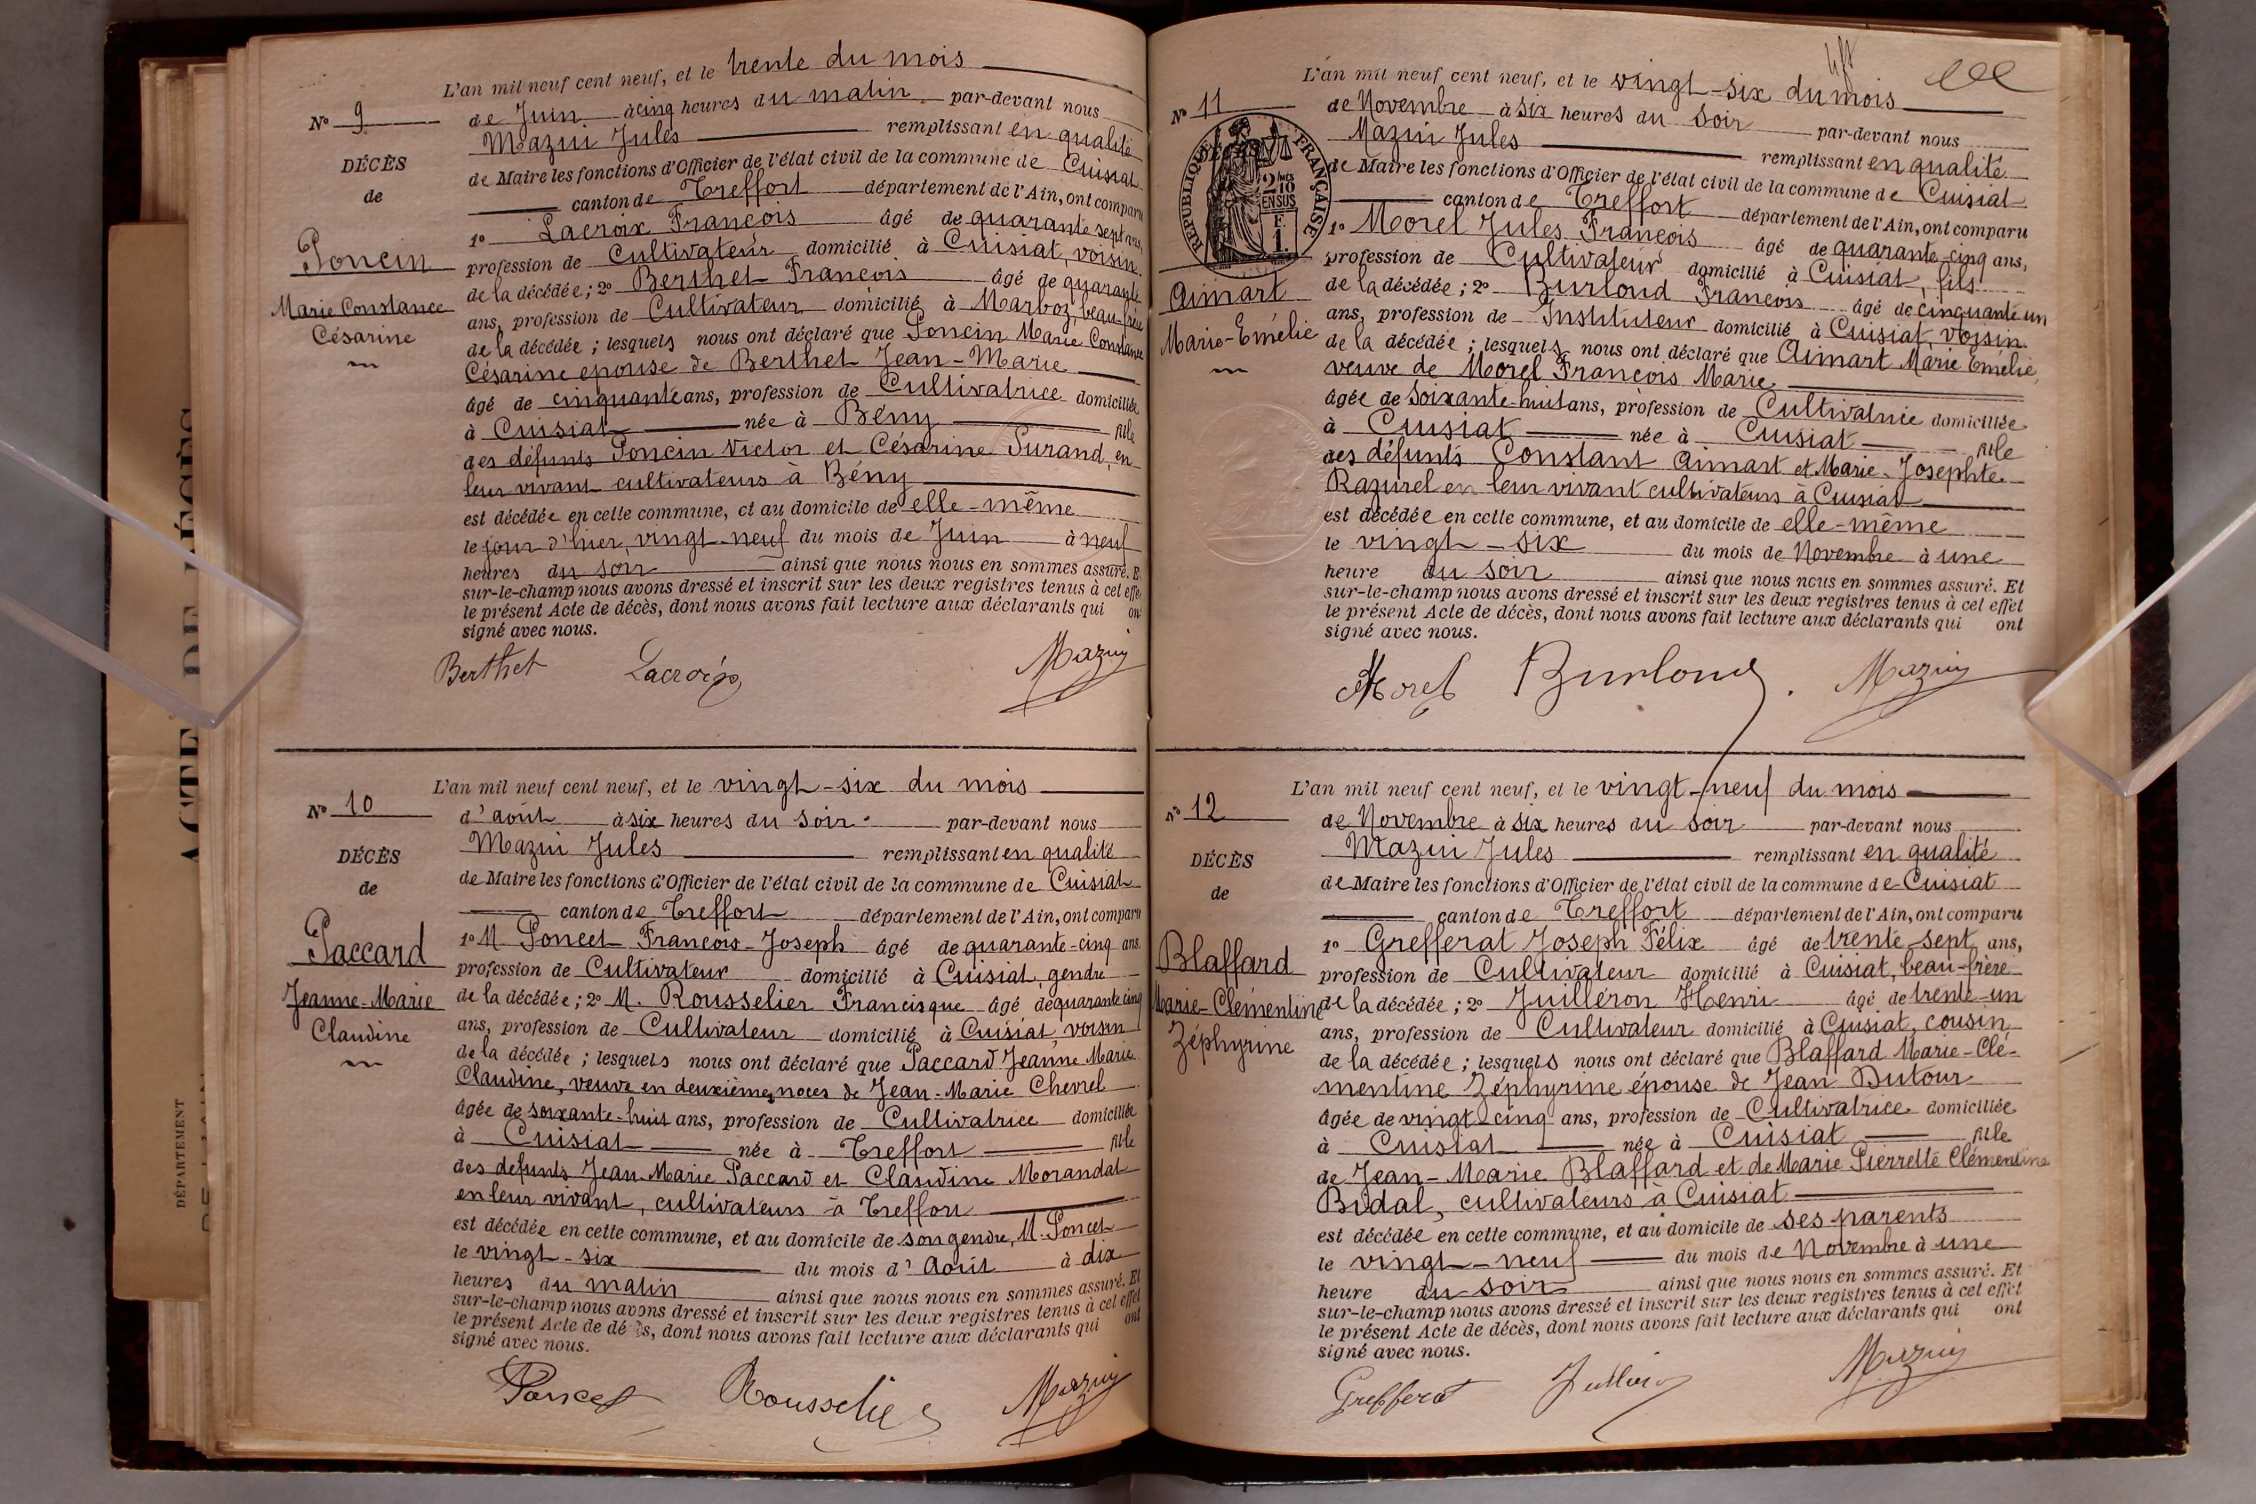 L'an mil neuf cent neuf, et le trente du mois
N° 9
de Juin à cinq heures du matin par-devant nous
Mazui Jules remplissant en qualité
DÉCÈS
de Maire les fonctions d'Officier de l'état civil de la commune de Cuisiat
de
canton de Treffort département de l'Ain, ont comparu
1° Lacroix François âgé de quarante sept ans,
Poncin
profession de Cultivateur domicilié à Cuisiat, voisin
de la décédée ; 2° Berthet François âgé de quarante
Marie Constance
ans, profession de Cultivateur domicilié à Marboz, beau-frère
Césarine
de la décédée ; lesquels nous ont déclaré que Poncin Marie Constance
Césarine épouse de Berthet Jean-Marie
âgé de cinquante ans, profession de Cultivatrice domiciliée
à Cuisiat née à Bény fille
des défunts Poncin Victor et Césarine Surand, en
leur vivant cultivateurs à Bény
est décédée en cette commune, et au domicile de elle-même
le jour d'hier, vingt-neuf du mois de Juin à neuf
heures du soir ainsi que nous nous en sommes assuré. E
sur-le-champ nous avons dressé et inscrit sur les deux registres tenus à cet effe
le présent Acte de décès, dont nous avons fait lecture aux déclarants qui on
signé avec nous.
Berthet Lacroix Mazuy
L'an mil neuf cent neuf, et le vingt-six du mois
N° 10
d'août à six heures du soir par-devant nous
Mazui Jules remplissant en qualité
DÉCÈS
de Maire les fonctions d'Officier de l'état civil de la commune de Cuisiat
de
canton de Treffort département de l'Ain, ont comparu
1° M Poncet François-Joseph âgé de quarante-cinq ans.
Paccard
profession de Cultivateur domicilié à Cuisiat, gendre
Jeanne-Marie
de la décédée ; 2° M. Rousselier Francisque âgé de quarante cinq
Claudine
ans, profession de Cultivateur domicilié à Cuisiat, voisin
de la décédée ; lesquels nous ont déclaré que Paccard Jeanne Marie
Claudine, veuve en deuxièmes noces de Jean-Marie Chevrel
âgée de soixante-huit ans, profession de Cultivatrice domiciliée
à Cuisiat née à Treffort fille
des defunts Jean Marie Paccard et Claudine Morandat
en leur vivant, cultivateurs à Treffort
est décédée en cette commune, et au domicile de son gendre, M. Poncet
le vingt-six du mois d'Août à dix
heures du matin ainsi que nous nous en sommes assuré. Et
sur-le-champ nous avons dressé et inscrit sur les deux registres tenus à cet effet
le présent Acte de décès, dont nous avons fait lecture aux déclarants qui ont
signé avec nous.
Poncet Rousselier Mazuy
L'an mil neuf cent neuf, et le vingt-six du mois
N° 11
de Novembre à six heures du soir par-devant nous
Mazui Jules remplissant en qualité
RÉPUBLIQUE FRANÇAISE
2/10 EN SUS
de Maire les fonctions d'Officier de l'état civil de la commune de Cuisiat
canton de Treffort département de l'Ain, ont comparu
1° Morel Jules François âgé de quarante-cinq ans,
profession de Cultivateur domicilié à Cuisiat, fils
Aimart
de la décédée ; 2° Burloud François âgé de cinquante un
Marie-Emélie
ans, profession de Instituteur domicilié à Cuisiat, voisin
de la décédée ; lesquels nous ont déclaré que Aimart Marie Emélie,
veuve de Morel François Marie
âgée de soixante-huit ans, profession de Cultivatrice domiciliée
à Cuisiat née à Cuisiat fille
des défunts Constant Aimart et Marie-Josephte
Razurel en leur vivant cultivateurs à Cuisiat
est décédée en cette commune, et au domicile de elle-même
le vingt-six du mois de Novembre à une
heure du soir ainsi que nous nous en sommes assuré. Et
sur-le-champ nous avons dressé et inscrit sur les deux registres tenus à cet effet
le présent Acte de décès, dont nous avons fait lecture aux déclarants qui ont
signé avec nous.
Morel Burloud Mazuy
L'an mil neuf cent neuf, et le vingt-neuf du mois
N° 12
de Novembre à six heures du soir par-devant nous
Mazui Jules remplissant en qualité
DÉCÈS
de Maire les fonctions d'Officier de l'état civil de la commune de Cuisiat
de
canton de Treffort département de l'Ain, ont comparu
1° Grefferat Joseph Félix âgé de trente-sept ans,
Blaffard
profession de Cultivateur domicilié à Cuisiat, beau-frère
Marie-Clémentine
de la décédée ; 2° Juilléron Henri âgé de trente-un
Zéphyrine
ans, profession de Cultivateur domicilié à Cuisiat, cousin
de la décédée ; lesquels nous ont déclaré que Blaffard Marie-Clé-
mentine Zéphyrine épouse de Jean Dutour
âgée de vingt-cinq ans, profession de Cultivatrice domiciliée
à Cuisiat née à Cuisiat fille
de Jean-Marie Blaffard et de Marie Pierrette Clémentine
Bidal, cultivateurs à Cuisiat
est décédée en cette commune, et au domicile de ses parents
le vingt-neuf du mois de Novembre à une
heure du soir ainsi que nous nous en sommes assuré. Et
sur-le-champ nous avons dressé et inscrit sur les deux registres tenus à cet effet
le présent Acte de décès, dont nous avons fait lecture aux déclarants qui ont
signé avec nous.
Grefferat Juilleron Mazuy
DÉPARTEMENT